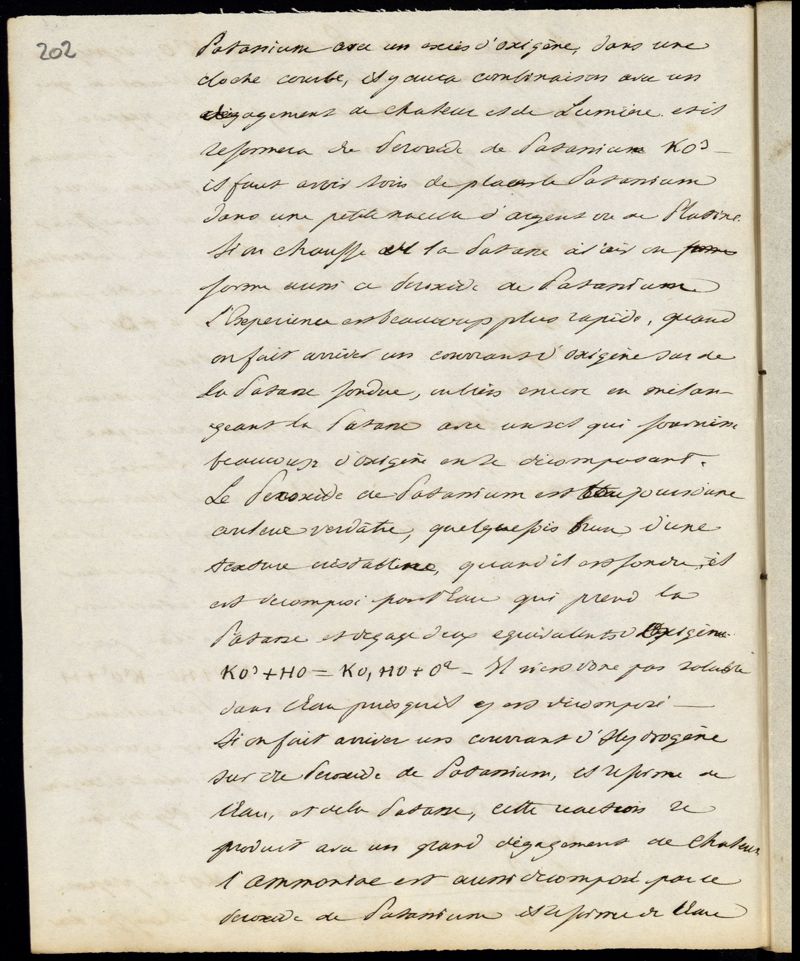 202
Potassium avec un excès d'oxigène, dans une
cloche courbe, il y aura combinaison avec un
dégagement de chaleur et de Lumière et il
se formera du Peroxide de Potassium KO³ —
il faut avoir soin de placer le Potassium
dans une petite nacelle d'argent ou de Platine.
Si on chauffe de la Potasse à l'air on forme
forme aussi ce Peroxide de Potassium.
L'Experience est beaucoup plus rapide, quand
on fait arriver un courrant d'oxigène sur de
la Potasse fondue, ou bien encore en mélan-
geant la Potasse avec un sel qui fournisse
beaucoup d'oxigène en se décomposant.
Le Peroxide de Potassium est jouis d'une
couleur verdâtre, quelquefois brun d'une
texture cristalline, quand il est fondu, il
est décomposé par l'Eau qui prend la
Potasse et dégage deux equivalents d'Oxigène.
KO³ + HO = KO, HO + O² — Il n'est donc pas soluble
dans l'Eau puisqu'il y est décomposé —
Si on fait arriver un courrant d'Hydrogène
sur du Peroxide de Potassium, il se forme de
l'Eau, et de la Potasse, cette reaction se
produit avec un grand dégagement de chaleur
l'ammoniac est aussi décomposé par ce
Peroxide de Potassium il se forme de l'Eau